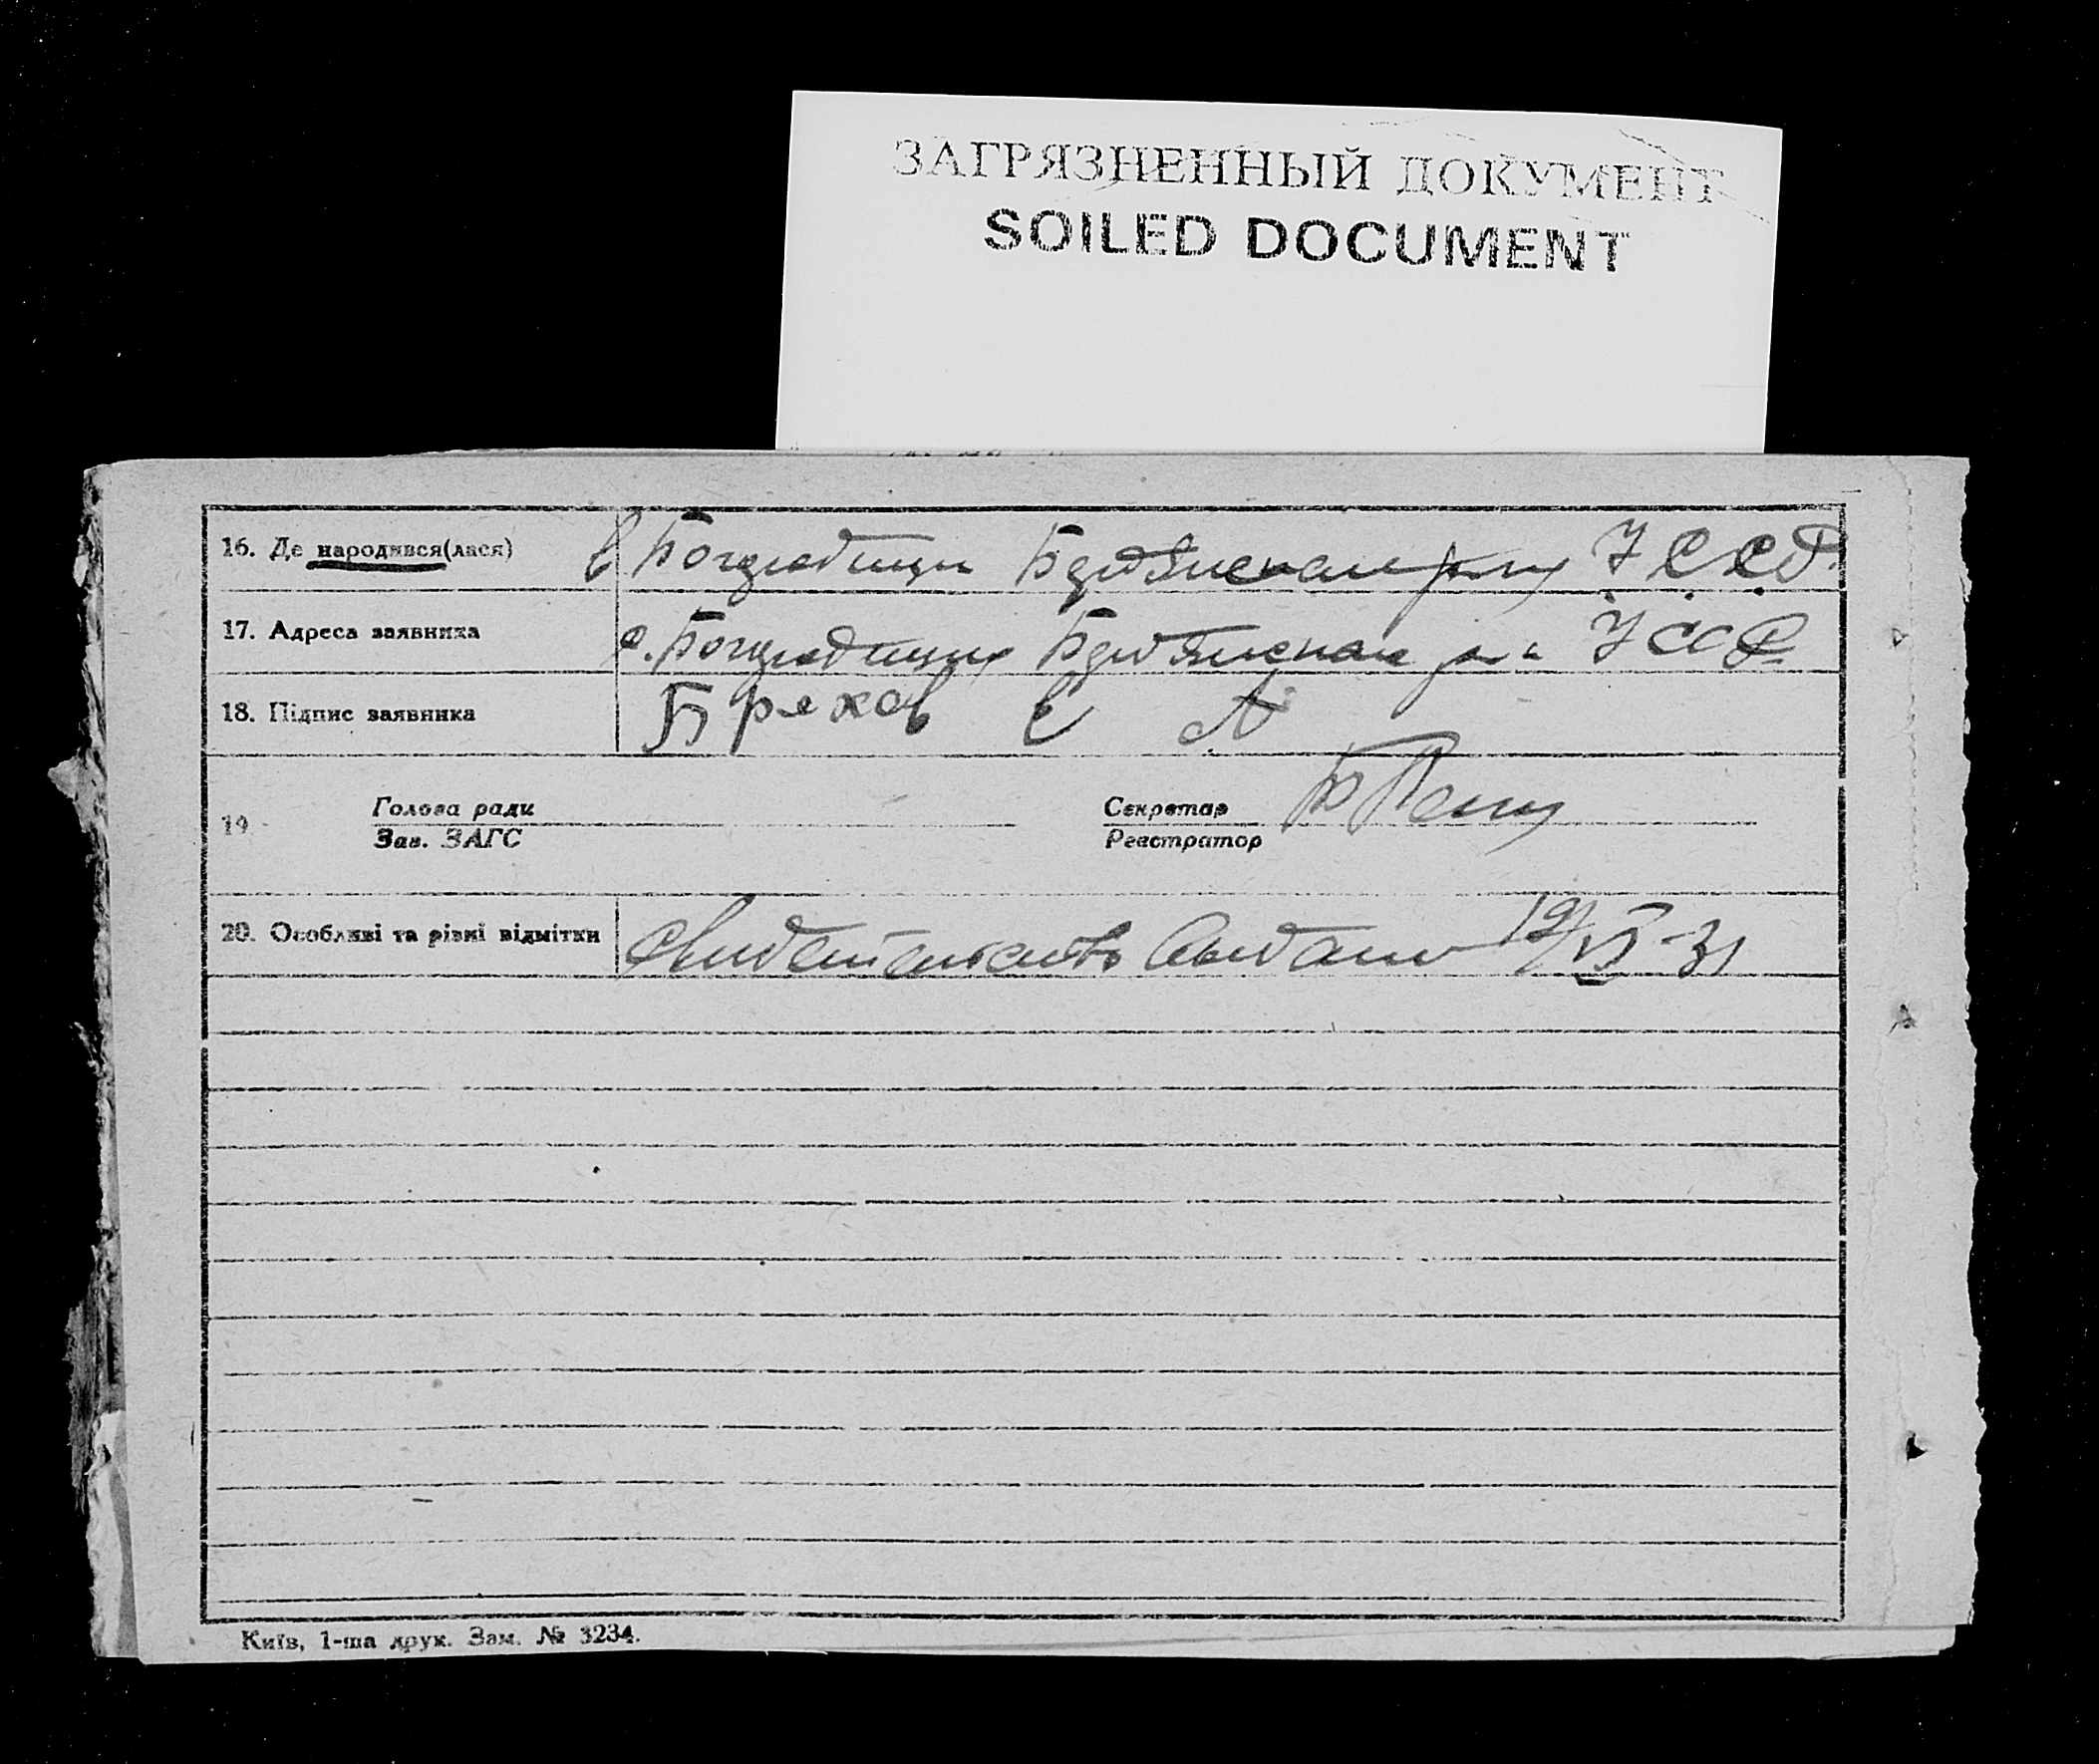 ЗАГРЯЗНЕННЫЙ ДОКУМЕНТ
SOILED DOCUMENT
16. Де народився(лася) в УССР.
17. Адреса заявника с. УССР
18. Підпис заявника Брехов Е А
19. Голова ради Секретар
Зав. ЗАГС Реєстратор
20. Особливі та різні відмітки Свидетельство выдано 19/VI-31
Київ, 1-ша друк. Зам. № 3234.